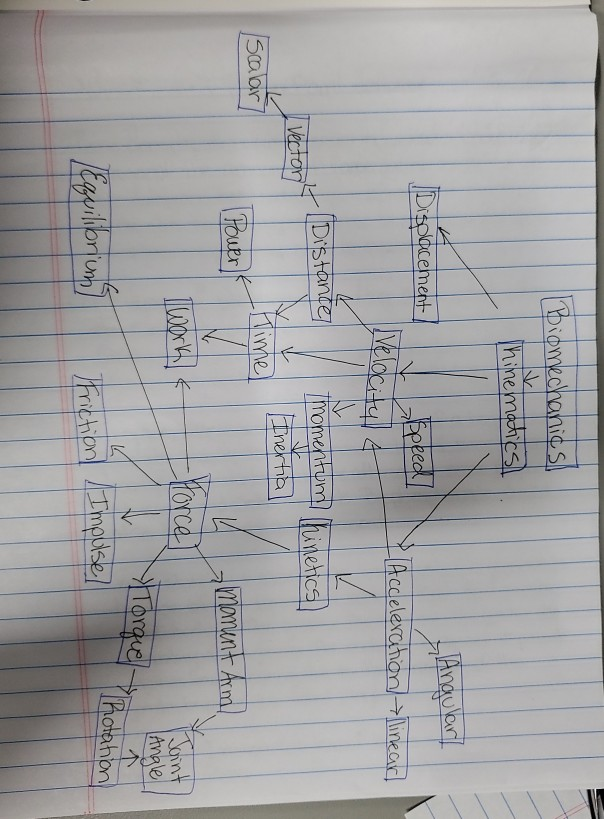 Biomechanics
Kinematics
Displacement
Velocity
Speed
Acceleration
Angular
linear
Distance
Vector
Scalar
Time
Power
Work
Momentum
Inertia
Kinetics
Force
Equilibrium
Friction
Impulse
Torque
Momunt Arm
Joint
Angle
Rotation